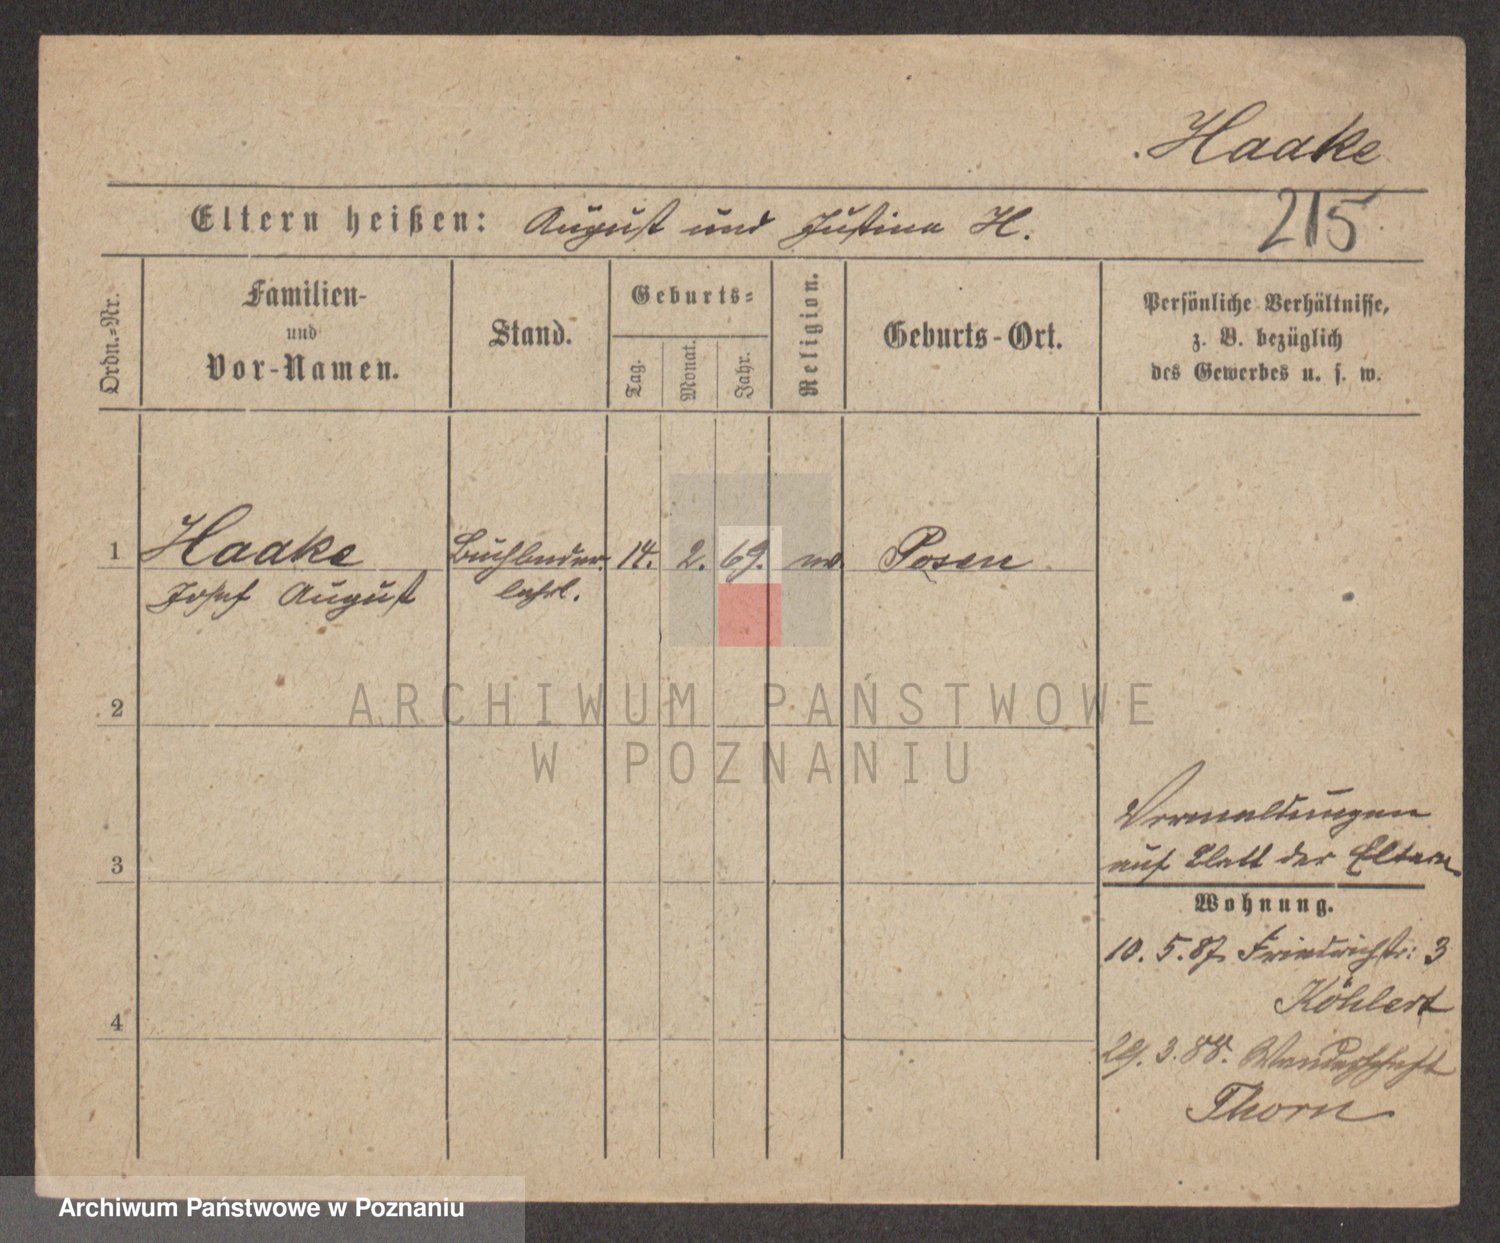 Haake
215
Eltern heißen: August und Justina H.
Ordn.-Nr.
Familien-
und
Vor-Namen.
Stand.
Geburts-
Tag.
Monat.
Jahr.
Religion.
Geburts-Ort.
Persönliche Verhältnisse,
z. B. bezüglich
des Gewerbes u. s. w.
1 Haake Buchbinder 14. 2. 69. Posen
Josef August lehrl.
2
ARCHIWUM PAŃSTWOWE
W POZNANIU
3
Vermeldungen
auf Blatt der Eltern
Wohnung.
10. 5. 87. Friedrichstr: 3
Köhlert
4
29. 3. 88. Wanderschaft
Thorn
Archiwum Państwowe w Poznaniu